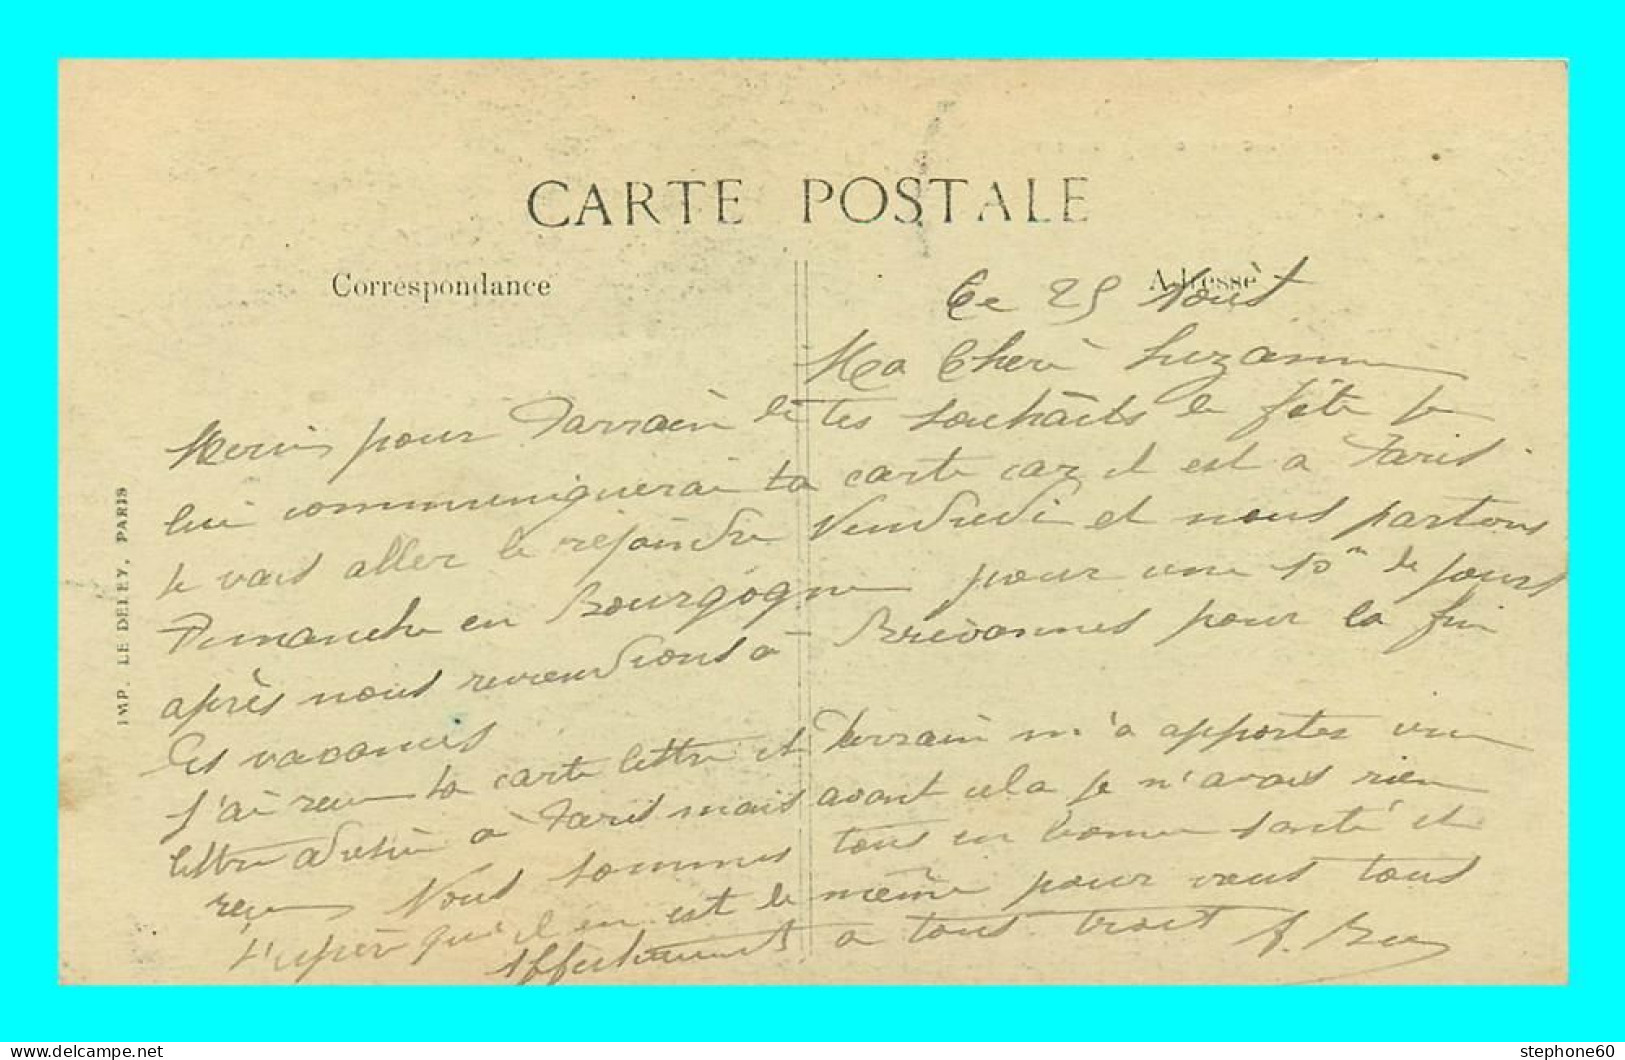 CARTE POSTALE
Correspondance
Adresse
Ce 25 Aout
Ma Cherè Suzanne
Mercis pour Parrain de tes souhaits de fête je
lui communiquerai ta carte car il est a Paris.
Je vais aller le rejoindre Vendredi et nous partons
Dimanche en Bourgogne pour une 10ne de jours
après nous reviendrons à Brévannes pour la fin
des vacances
J'ai reçu ta carte lettre et Parrain m'a apporter une
lettre adressée à Paris mais avant cela je n'avais rien
reçu Nous sommes tous en bonne santé et
J'espère qu'il en est de même pour vous tous
Affectueusement a tous trois
IMP. LE DELEY, PARIS
https://www.delcampe.net
stephone60